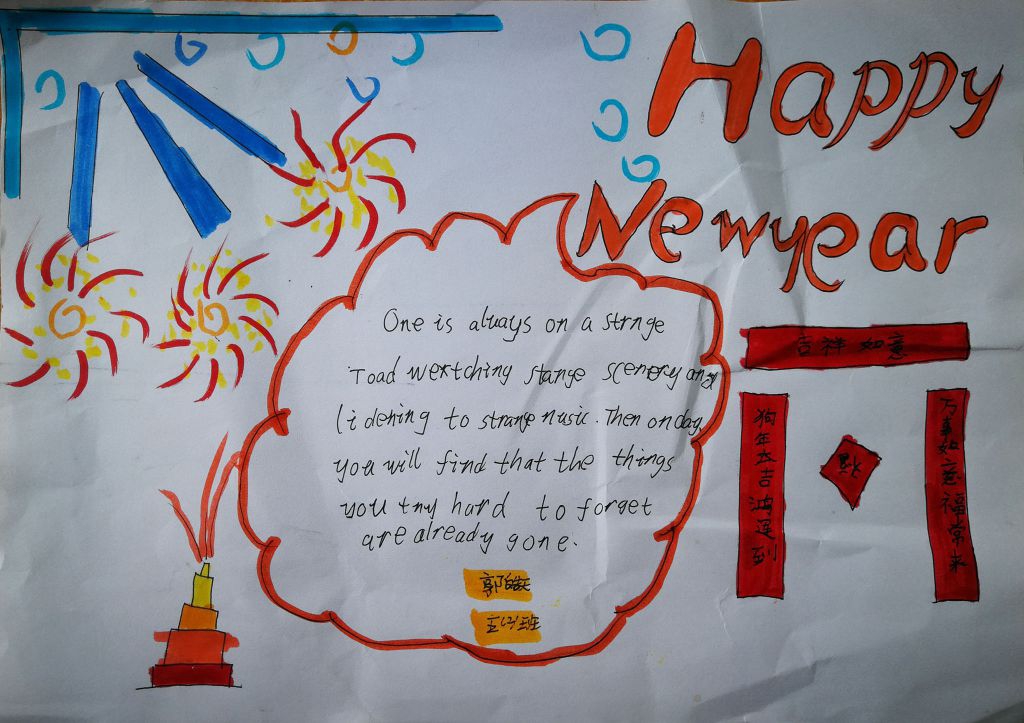 Happy
Newyear
One is always on a strnge
Toad wertching stange scenery and
lidening to strange nusic. Then on day
you will find that the things
you try hard to forget
are already gone.
吉祥如意
狗年大吉鸿运到
万事如意福常来
五(3)班